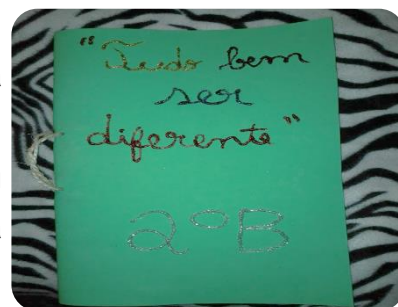 "Tudo bem
ser
diferente"
2º B